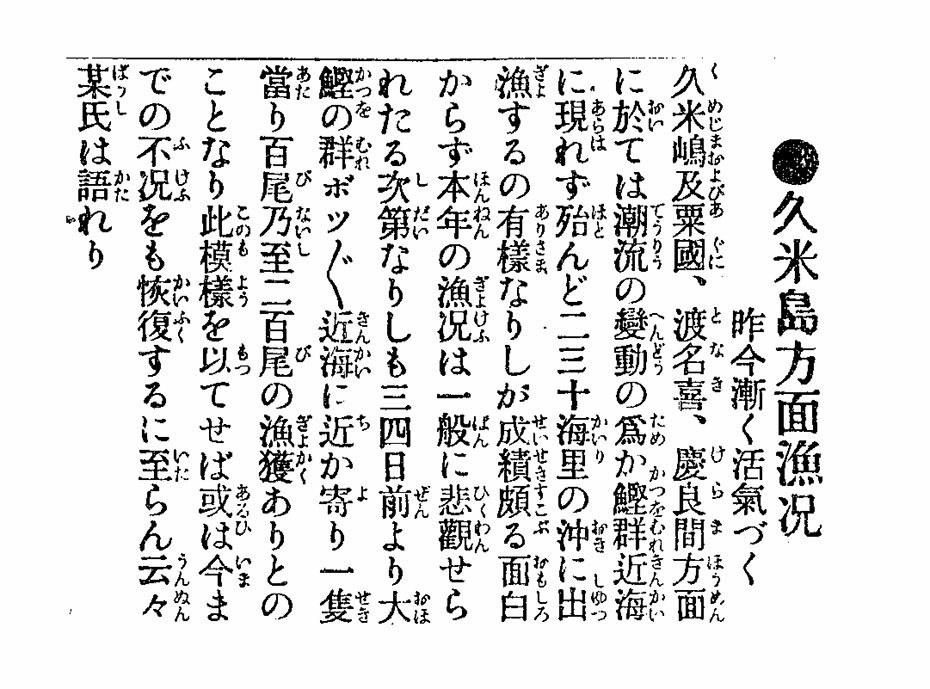 ●久米島方面漁況
昨今漸く活氣づく
久米嶋及粟國、渡名喜、慶良間方面
に於ては潮流の變動の爲か鰹群近海
に現れず殆んど二三十海里の沖に出
漁するの有樣なりしが成績頗る面白
からず本年の漁況は一般に悲觀せら
れたる次第なりしも三四日前より大
鰹の群ボツ〱近海に近か寄り一隻
當り百尾乃至二百尾の漁獲ありとの
ことなり此模樣を以てせば或は今ま
での不況をも恢復するに至らん云々
某氏は語れり